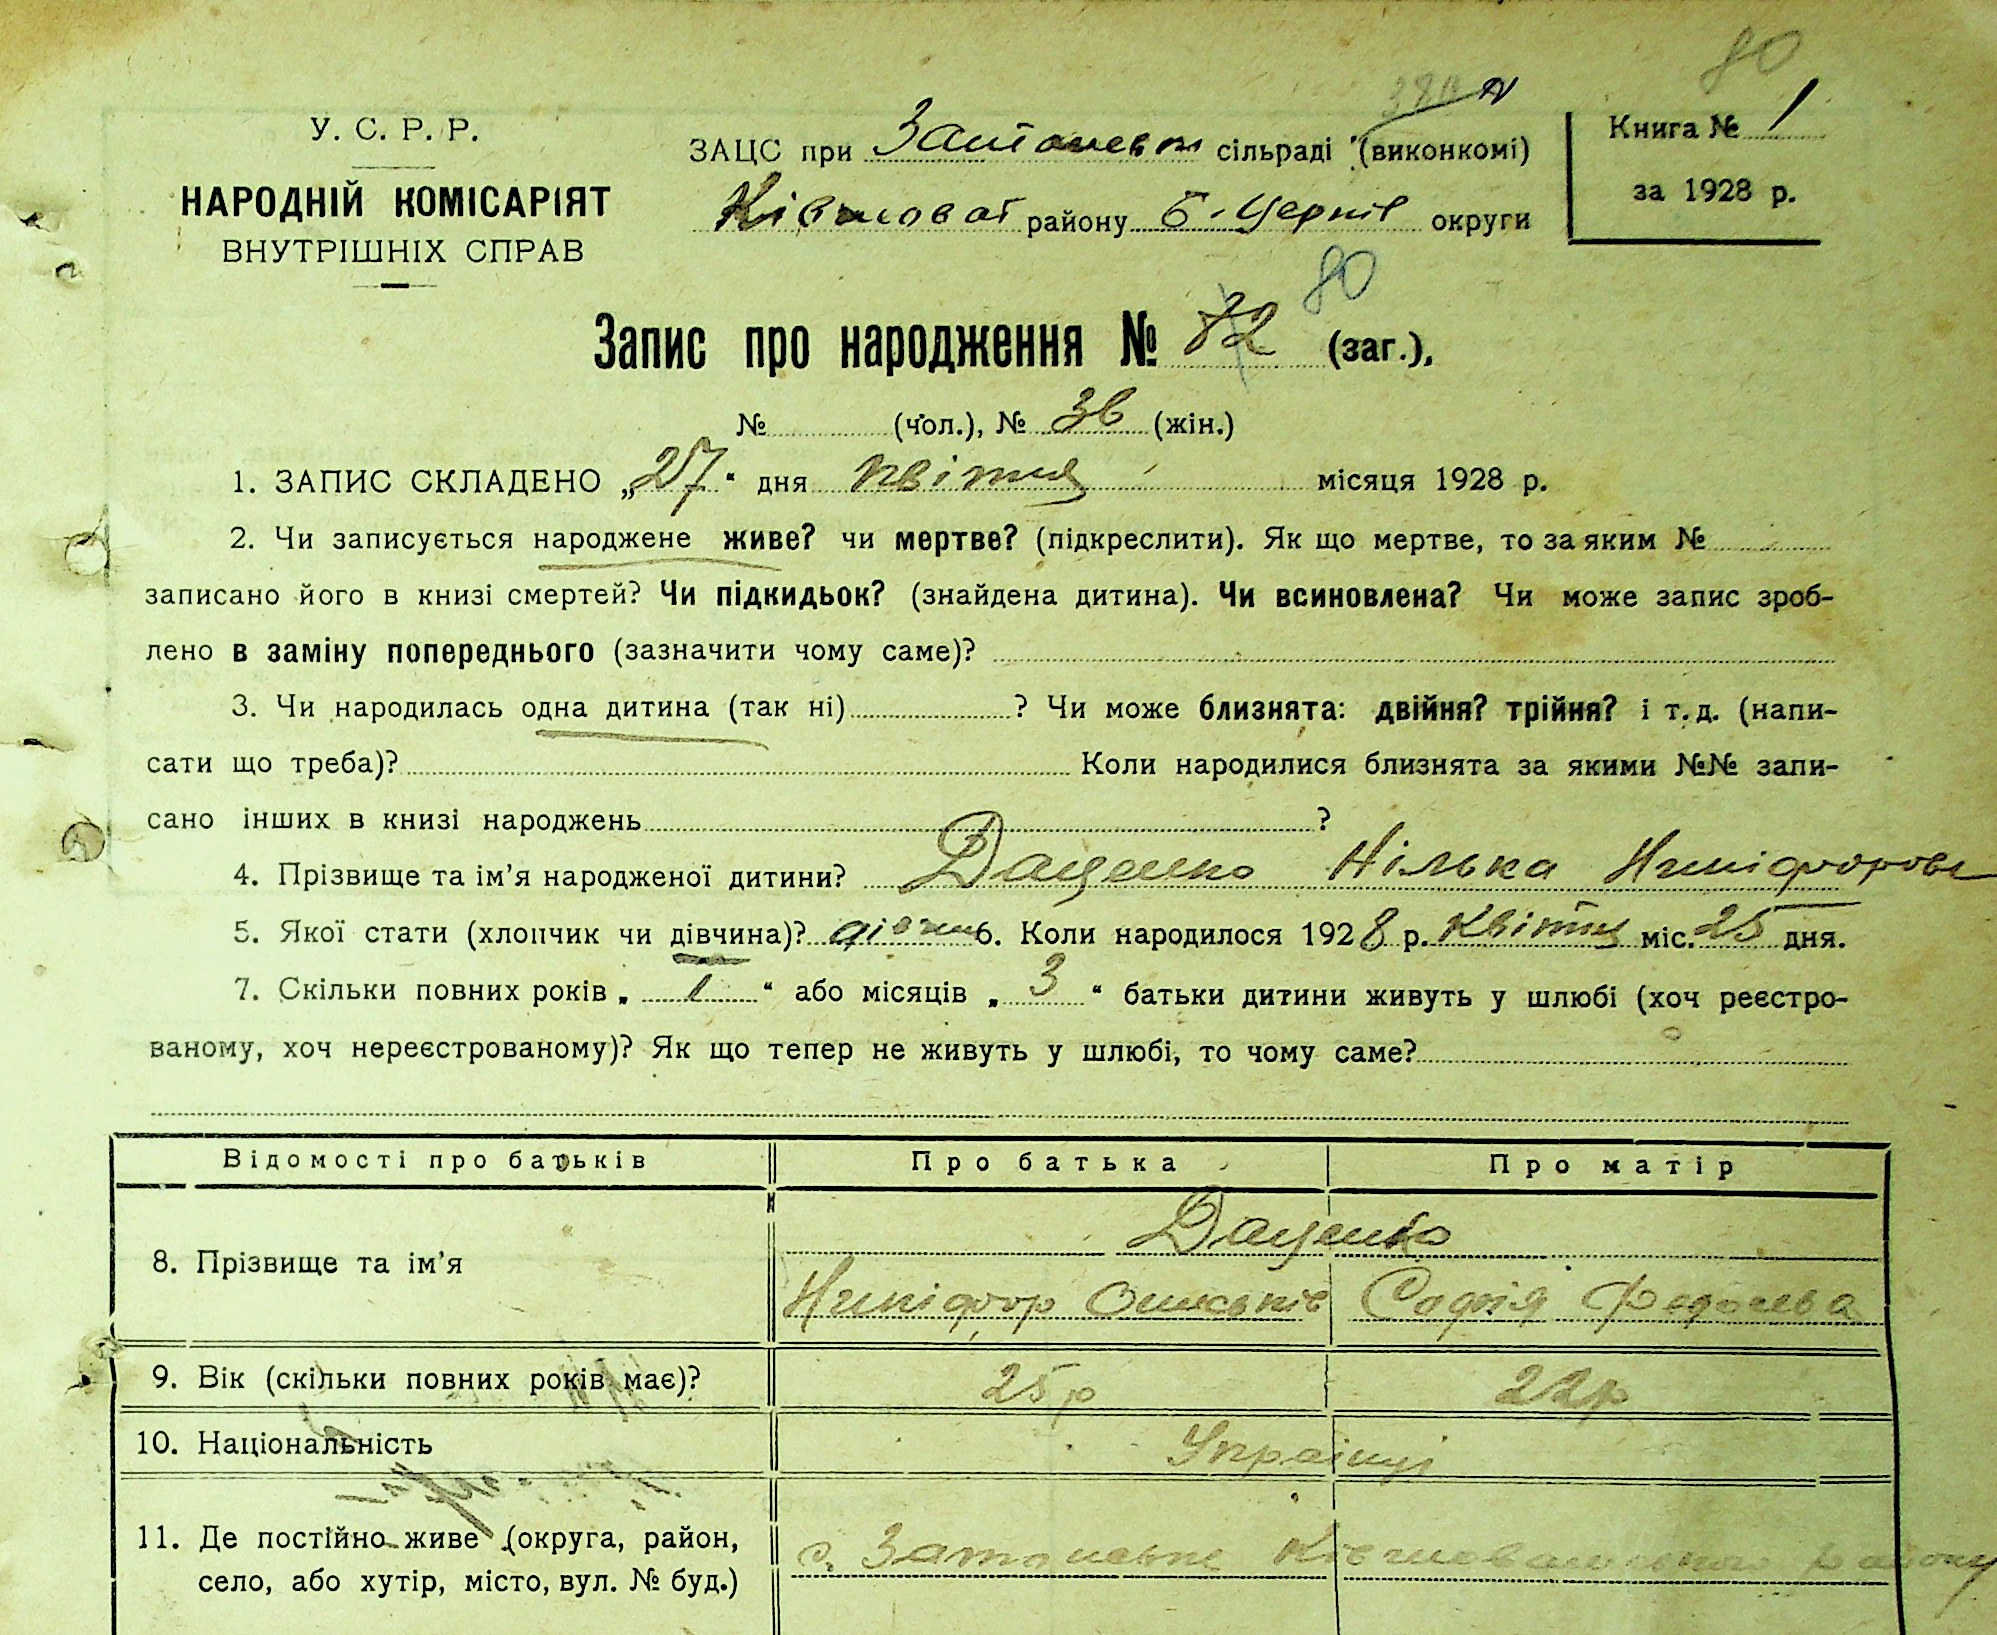 80
У. С. Р. Р.
НАРОДНІЙ КОМІСАРІЯТ
ВНУТРІШНІХ СПРАВ
ЗАЦС при сільраді (виконкомі)
району Б. Церків округи
Книга № 1
за 1928 р.
80
Запис про народження № 82 (заг.),
№ (чол.), № 36 (жін.)
1. ЗАПИС СКЛАДЕНО „27“ дня квітня місяця 1928 р.
2. Чи записується народжене живе? чи мертве? (підкреслити). Як що мертве, то за яким №
записано його в книзі смертей? Чи підкидьок? (знайдена дитина). Чи всиновлена? Чи може запис зроб-
лено в заміну попереднього (зазначити чому саме)?
3. Чи народилась одна дитина (так ні) ? Чи може близнята: двійня? трійня? і т. д. (напи-
сати що треба)? Коли народилися близнята за якими №№ запи-
сано інших в книзі народжень ?
4. Прізвище та ім’я народженої дитини? Даценко Нілька
5. Якої стати (хлопчик чи дівчина)? дівчин 6. Коли народилося 1928 р. Квітня міс. 25 дня.
7. Скільки повних років „ 1 “ або місяців „ 3 “ батьки дитини живуть у шлюбі (хоч реєстро-
ваному, хоч нереєстрованому)? Як що тепер не живуть у шлюбі, то чому саме?
Відомості про батьків Про батька Про матір
8. Прізвище та ім’я Даценко
Никіфор Софія
9. Вік (скільки повних років має)? 25 р 22 р
10. Національність Українці
11. Де постійно живе (округа, район, с. району
село, або хутір, місто, вул. № буд.)